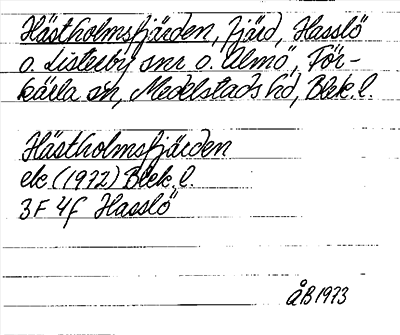 Hästholmsfjärden, fjärd, Hasslö
o. Listerby snr o. Almö, För-
kärla sn, Medelstads hd, Blek.l.
Hästholmsfjärden
ek (1972) Blek.l.
3F 4f Hasslö
ÅB 1973